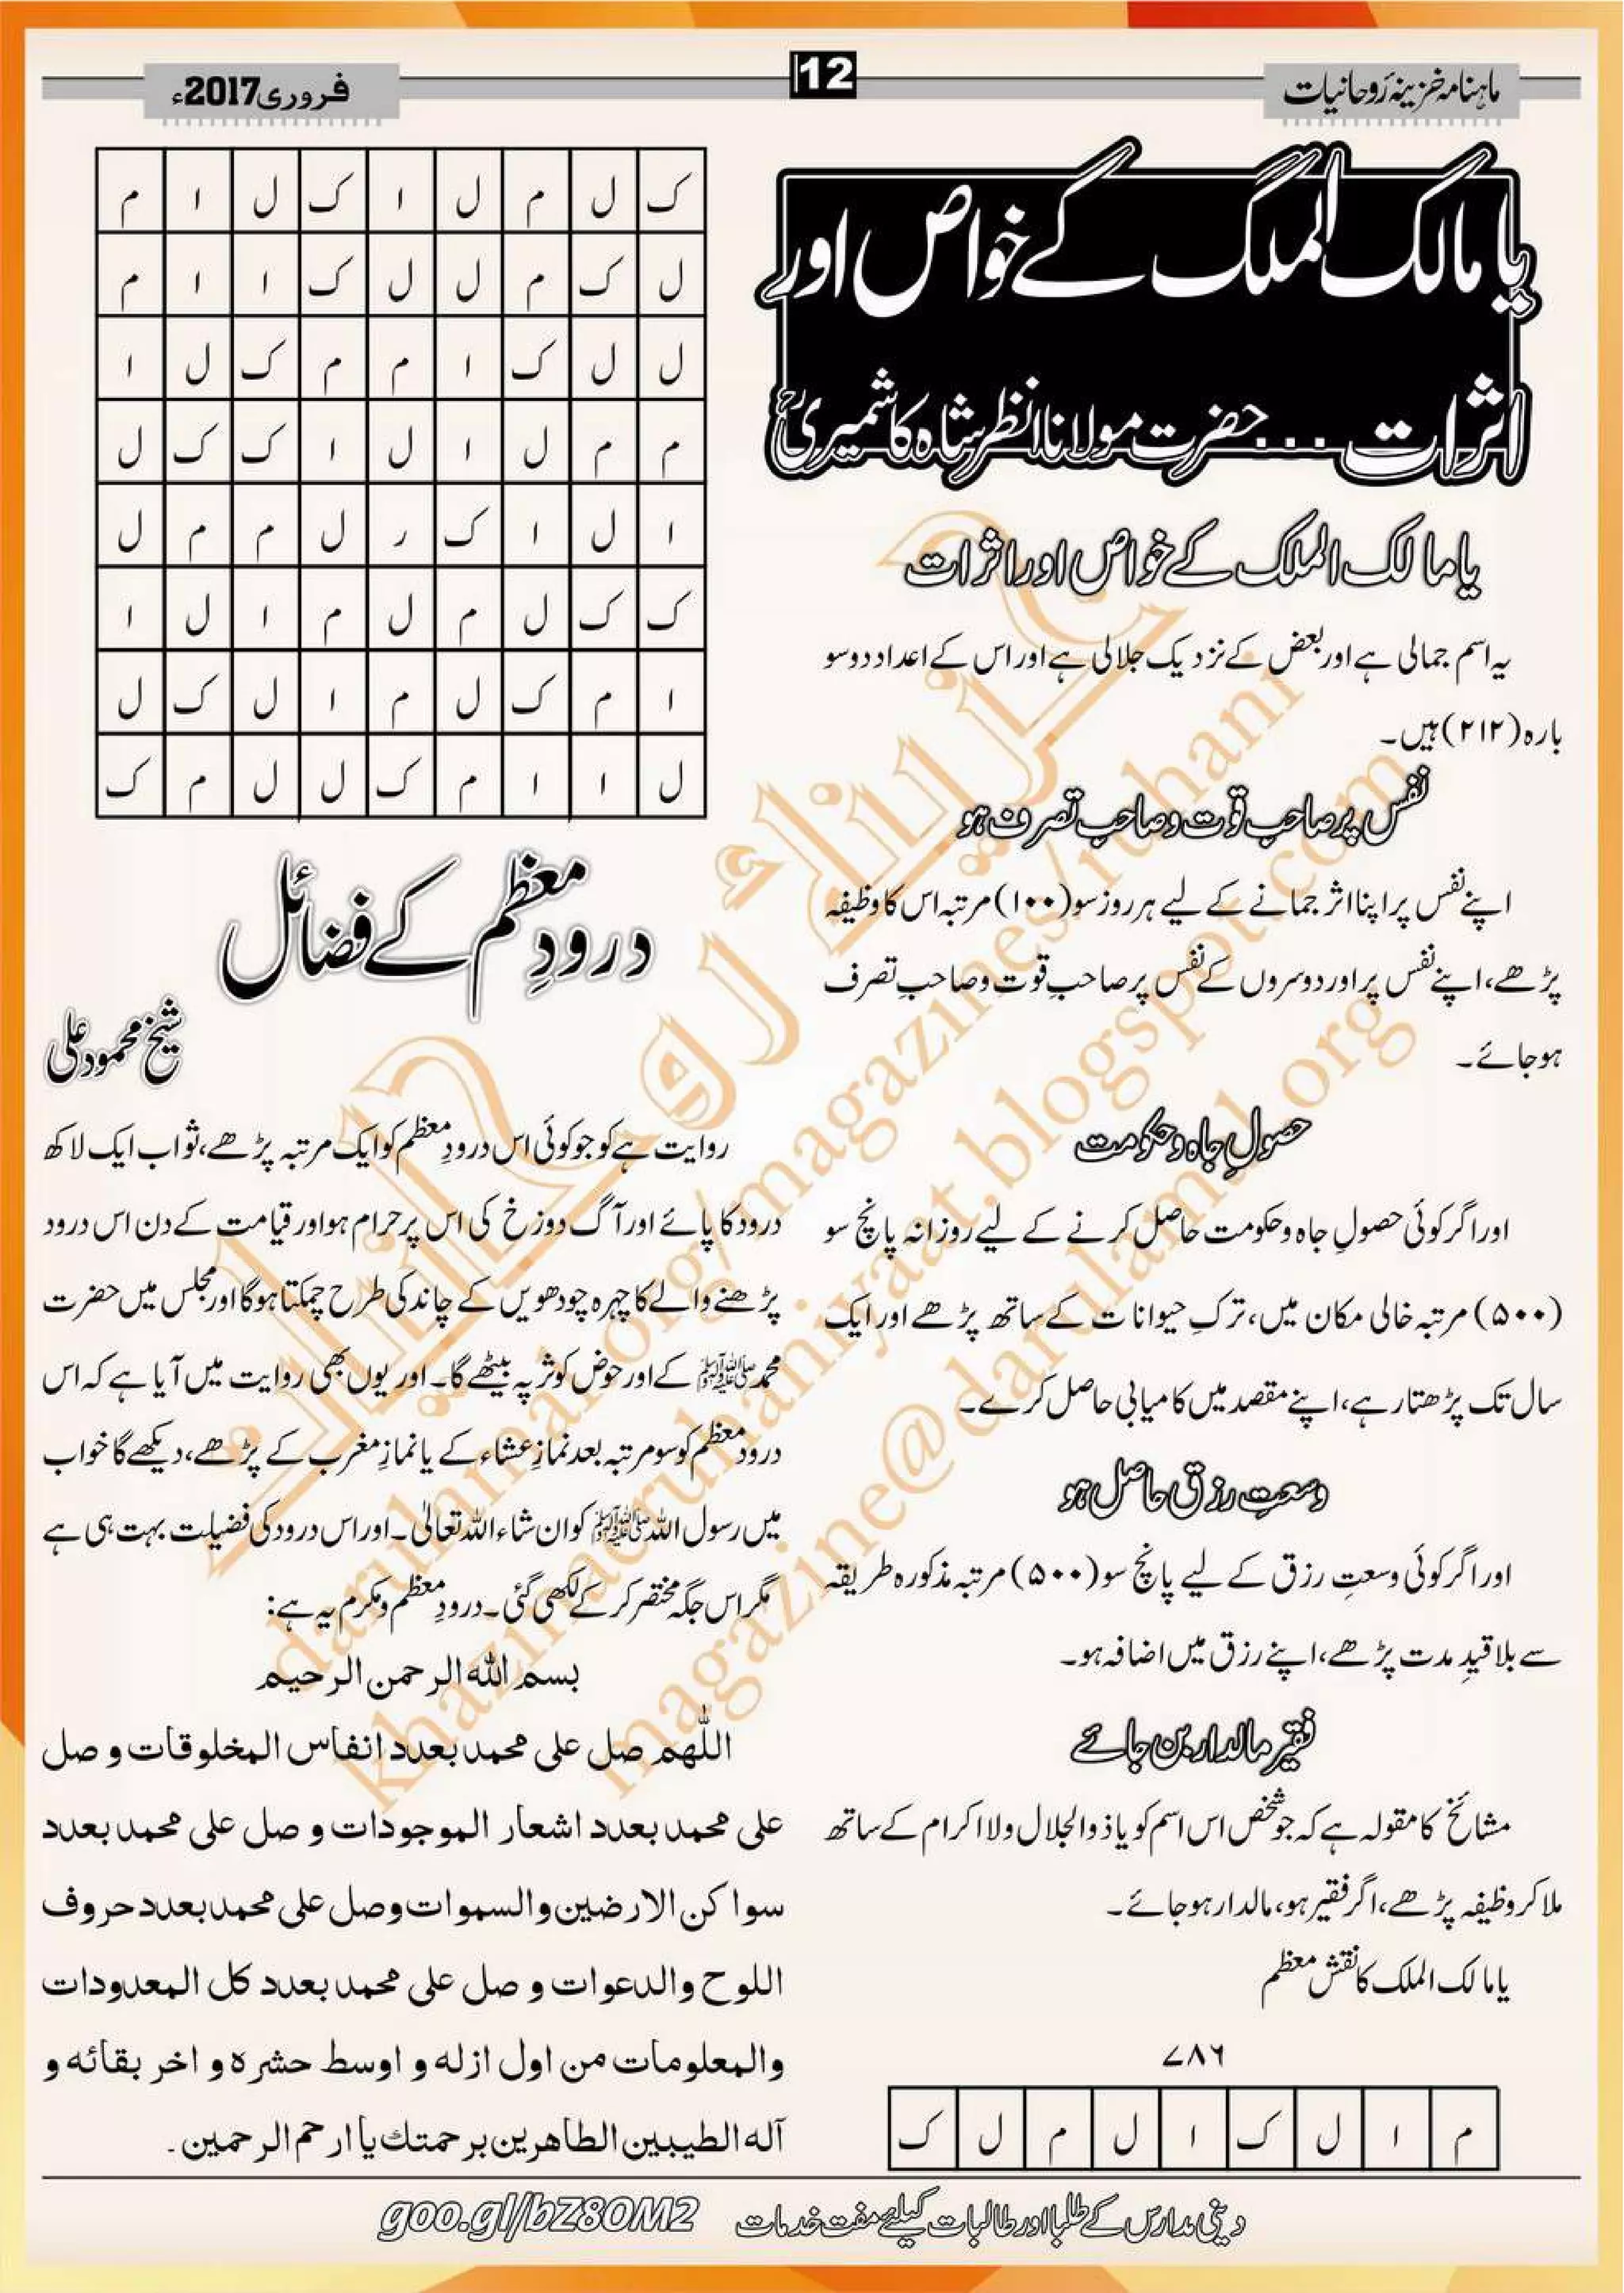 ماہنامہ خزینۂ روحانیات
12
فروری 2017ء
یا مالک الملک کے خواص اور
اثرات ... حضرت مولانا انظر شاہ کاشمیریؒ
یا مالک الملک کے خواص اور اثرات
یہ اسم جمالی ہے اور بعض کے نزدیک جلالی ہے اور اس کے اعداد دو سو
بارہ (۲۱۲) ہیں۔
نفس پر صاحبِ قوّت و صاحبِ تصرف ہو
اپنے نفس پر اپنا اثر جمانے کے لیے ہر روز سو (۱۰۰) مرتبہ اس کا وظیفہ
پڑھے، اپنے نفس پر اور دوسروں کے نفس پر صاحبِ قوت و صاحبِ تصرف
ہو جائے۔
حصولِ جاہ و حکومت
اور اگر کوئی حصولِ جاہ و حکومت حاصل کرنے کے لیے روزانہ پانچ سو
(۵۰۰) مرتبہ خالی مکان میں، ترکِ حیوانات کے ساتھ پڑھے اور ایک
سال تک پڑھتا رہے، اپنے مقصد میں کامیابی حاصل کرے۔
وسعتِ رزق حاصل ہو
اور اگر کوئی وسعتِ رزق کے لیے پانچ سو (۵۰۰) مرتبہ مذکورہ طریقہ
سے بلا قیدِ مدت پڑھے، اپنے رزق میں اضافہ ہو۔
فقیر مالدار بن جائے
مشائخ کا مقولہ ہے کہ جو شخص اس اسم کو یا ذوالجلال ولا اکرام کے ساتھ
ملا کر وظیفہ پڑھے، اگر فقیر ہو، مالدار ہو جائے۔
یا مالک الملک کا نقش معظم
۷۸۶
م ا ل ک ا ل م ل ک
ک ل م ل ا ک ل ا م
ل ک م ل ل ک ا ا م
ل ل ک ا م م ک ل ا
م م ل ا ل ا ک ک ل
ا ل ا ک ر ل م م ل
ک ک ل م ل م ا ل ا
ا م ک ل م ا ل ک ل
ل ا ا م ک ل ل م ک
درودِ معظم کے فضائل
شیخ محمود علی
روایت ہے کو جو کوئی اس درودِ معظم کو ایک مرتبہ پڑھے، ثواب ایک لاکھ
درود کا پائے اور آگ دوزخ کی اس پر حرام ہو اور قیامت کے دن اس درود
پڑھنے والے کا چہرہ چودھویں کے چاند کی طرح چمکتا ہوگا اور مجلس میں حضرت
محمد ﷺ کے اور حوض کوثر پہ بیٹھے گا۔ اور یوں بھی روایت میں آیا ہے کہ اس
درود معظم کو سو مرتبہ بعد نمازِ عشاء کے یا نمازِ مغرب کے پڑھے، دیکھے گا خواب
میں رسول اللہ ﷺ کو ان شاء اللہ تعالیٰ۔ اور اس درود کی فضیلت بہت ہی ہے
مگر اس جگہ مختصر کر کے لکھی گئی۔ درودِ معظم و مکرم یہ ہے:
بسم الله الرحمن الرحيم
اللّٰهم صل على محمد بعدد انفاس المخلوقات و صل
على محمد بعدد اشعار الموجودات و صل على محمد بعدد
سواكن الارضين والسموات وصل على محمد بعدد حروف
اللوح والدعوات و صل على محمد بعدد كل المعدودات
والمعلومات من اول ازله و اوسط حشره و اخر بقائه و
آله الطيبين الطاهرين برحمتك يا ارحم الرحمين۔
دینی مدارس کے طلبا اور طالبات کیلئے مفت خدمات goo.gl/bZ8OM2
خزینۂ روحانیات
darulamal.org/magazines/ruhani
khazinaeruhaniyaat.blogspot.com
magazine@darulamal.org